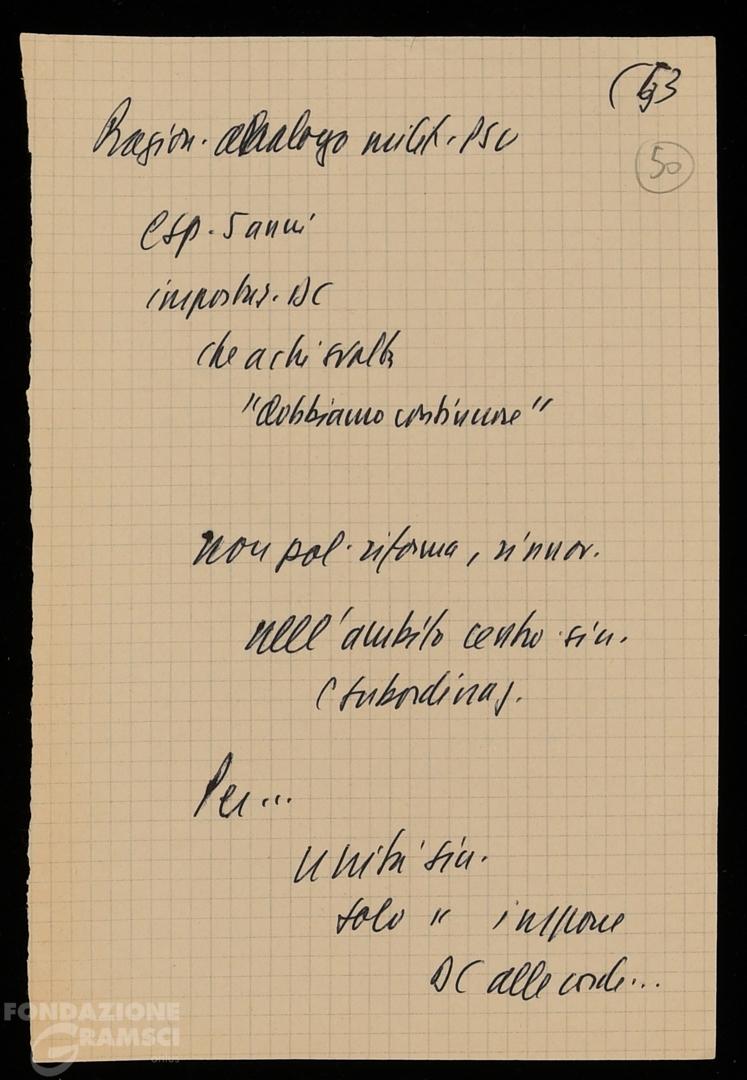 50
Ragion. dialogo milit. PSU
Esp. 5 anni
impostaz. DC
che a chi svolta
"dobbiamo continuare"
non pol. riforma, rinnov.
nell'ambito centro sin.
(subordinaz.
Per...
unità sin.
solo " impone
DC alle corde...
FONDAZIONE
GRAMSCI
onlus